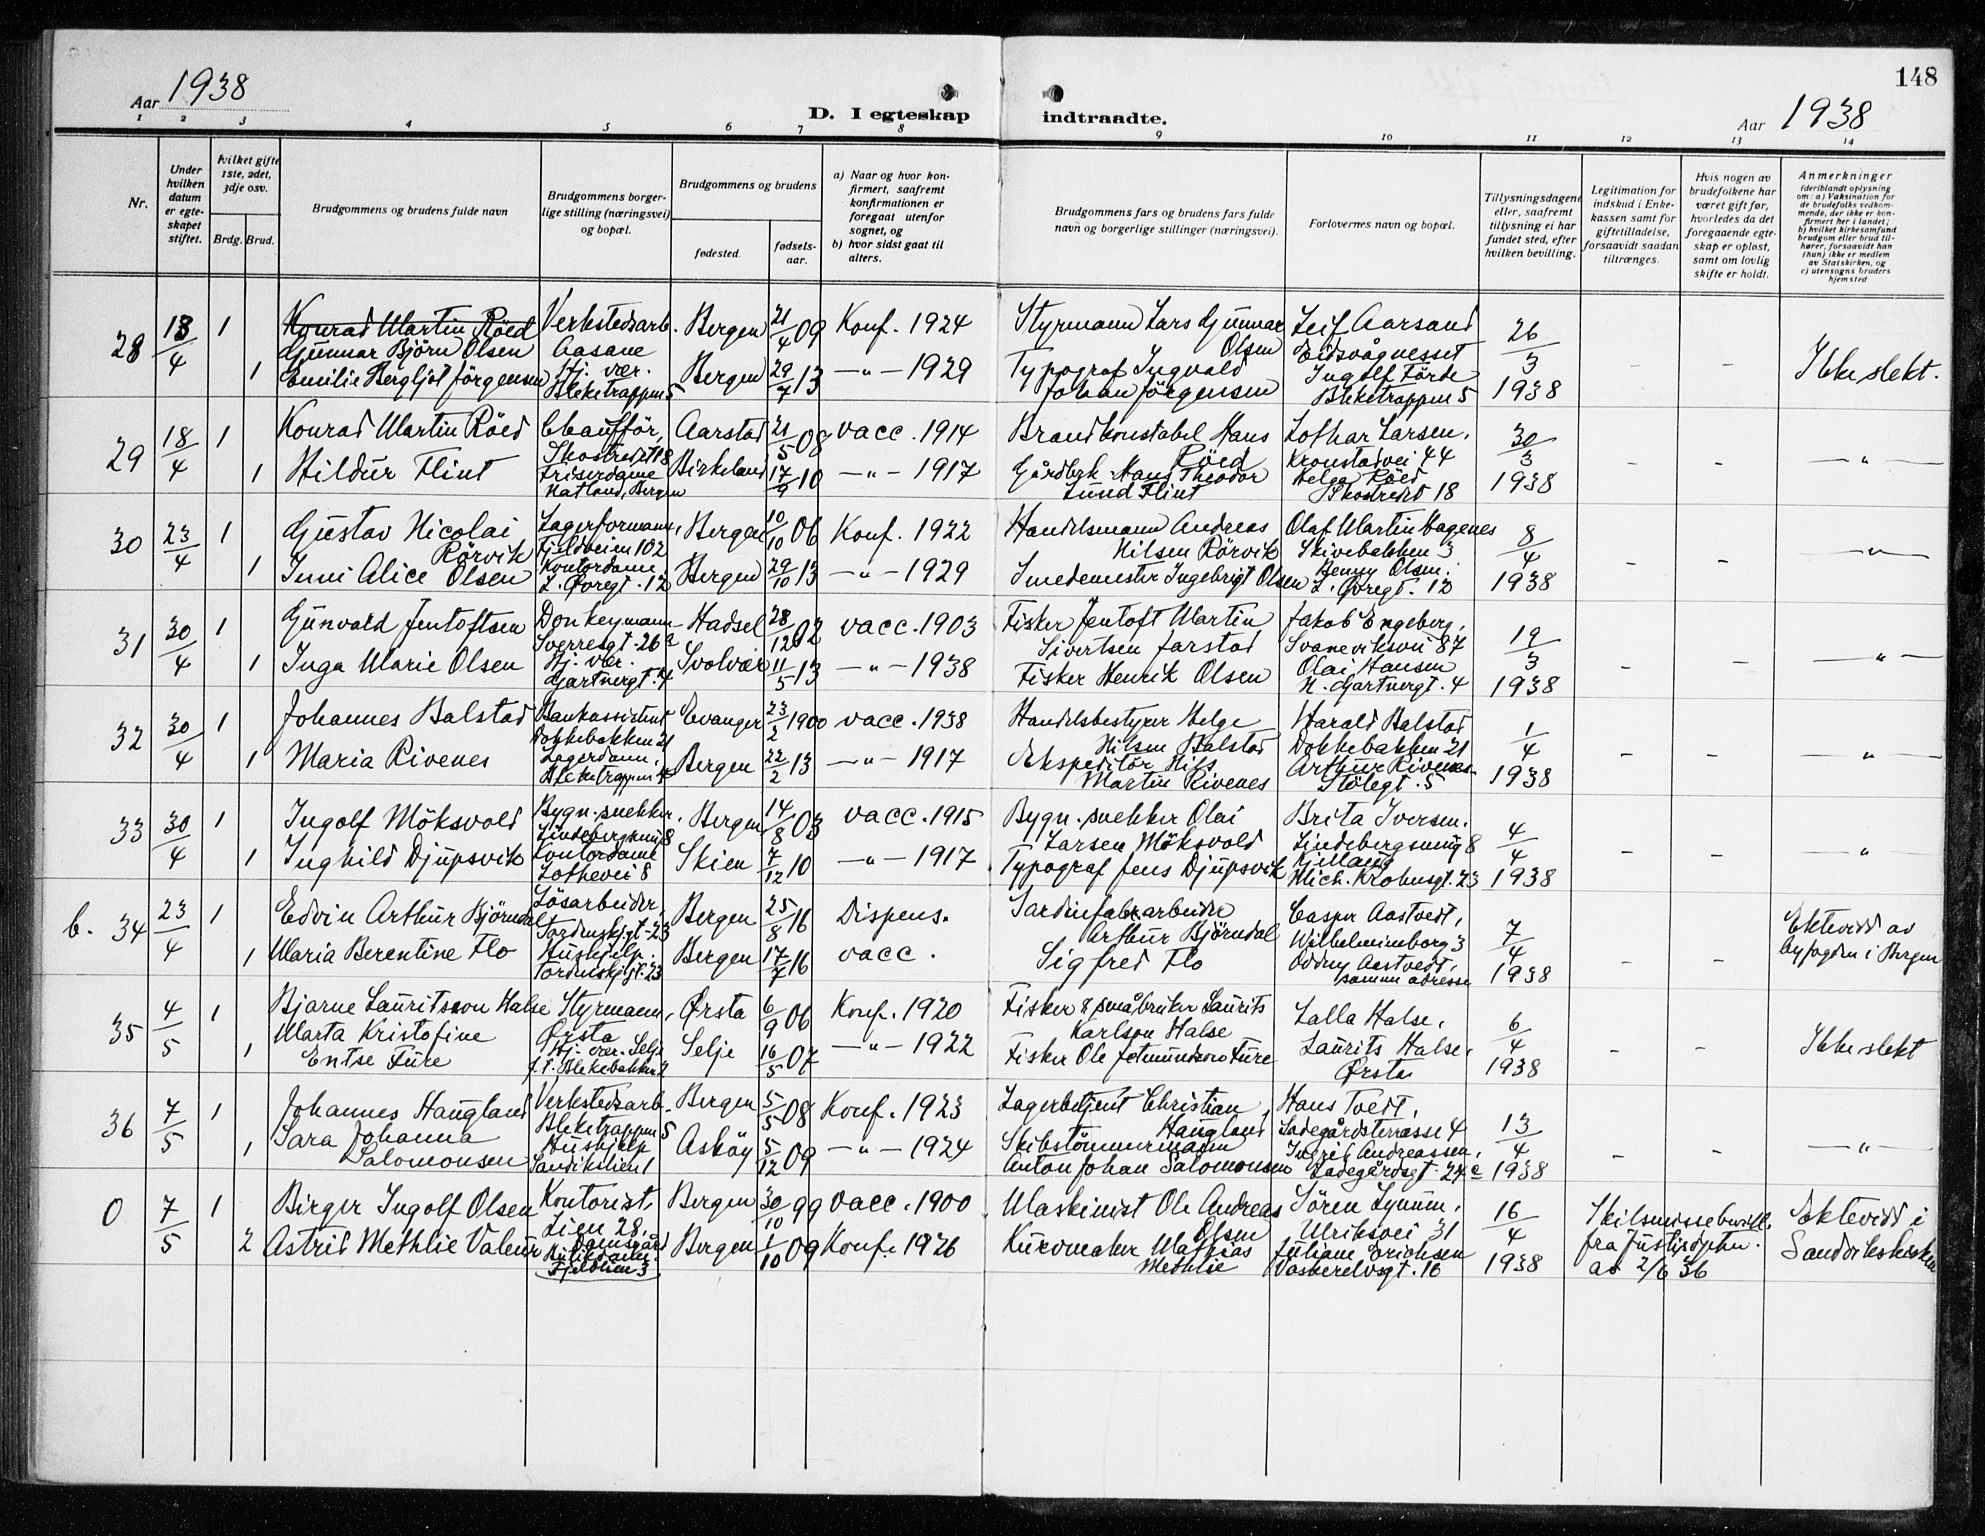 148
Aar 1938
D. I egteskap indtraadte.
Aar 1938
1 2 3 4 5 6 7 8 9 10 11 12 13 14
Nr.
Under hvilken datum er egteskapet stiftet.
hvilket gifte 1ste, 2det, 3dje osv.
Brdg. Brud.
Brudgommens og brudens fulde navn
Brudgommens borgerlige stilling (næringsvei) og bopæl.
Brudgommens og brudens
fødested.
fødselsaar.
a) Naar og hvor konfirmert, saafremt konfirmationen er foregaat utenfor sognet, og
b) hvor sidst gaat til alters.
Brudgommens fars og brudens fars fulde navn og borgerlige stillinger (næringsvei).
Forlovernes navn og bopæl.
Tillysningsdagene eller, saafremt tillysning ei har fundet sted, efter hvilken bevilling.
Legitimation for indskud i Enkekassen samt for giftetilladelse, forsaavidt saadan tiltrænges.
Hvis nogen av brudefolkene har været gift før, hvorledes da det foregaaende egteskap er opløst, samt om lovlig skifte er holdt.
Anmerkninger
(deriblandt oplysning om: a) Vaksination for de brudefolks vedkommende, der ikke er konfirmert her i landet; b) hvilket kirkesamfund brudgom eller brud tilhører, forsaavidt han (hun) ikke er medlem av Statskirken, og c) utensogns bruders hjemsted
28 18/4 1 Konrad Martin Röed Verkstedsarb. Bergen 21/4 09 Konf. 1924 Styrmann Lars Gunnar Leif Aarsand 26/3 1938 - - Ikke slekt.
Gunnar Björn Olsen Aasane Olsen Eidsvågnesset
1 Emilie Bergljot Jörgensen Hj. vær. Bleketrappen 5 Bergen 29/7 13 -"- 1929 Typograf Ingvald Johan Jörgensen Ingolf Förde Bleketrappen 5
29 18/4 1 Konrad Martin Röed Chaufför, Skostredet 18 Aarstad 21/5 08 vacc. 1914 Brandkonstabel Hans Röed Lothar Larsen, Kronstadvei 44 30/3 1938 - - -"-
1 Hildur Flint Friserdame Natland, Bergen Birkeland 17/9 10 -"- 1917 Gårdbrk Hans Theodor Lund Flint Helga Röed Skostredet 18
30 23/4 1 Gustav Nicolai Rörvik Lagerformann, Fjeldveien 102 Bergen 10/10 06 Konf. 1922 Handelsmann Andreas Nilsen Rörvik Olaf Martin Hagenes Skivebakken 3 8/4 1938 - - -"-
1 Inni Alice Olsen Kontordame. L. Øvregt. 12 Bergen 29/10 13 -"- 1929 Smedemester Ingebrigt Olsen Benny Olsen. L. Øvregt. 12
31 30/4 1 Gunvald Jentoftsen Donkeymann Sverresgt. 26a Hadsel 28/12 02 vacc. 1903 Fisker Jentoft Martin Sivertsen Jarstad Jakob Engeberg, Svaneviksvei 87 19/3 1938 - - -"-
1 Inga Marie Olsen Hj. vær. Gartnergt. 4 Svolvær 11/5 13 -"- 1938 Fisker Henrik Olsen Olai Hansen N. Gartnergt. 4
32 30/4 1 Johannes Balstad Bankassistent Dokkebakken 21 Evanger 23/2 1900 vacc. 1938 Handelsbestyrer Helge Nilsen Balstad Harald Balstad Dokkebakken 21 1/4 1938 - - -"-
1 Maria Rivenes Lagerdame, Bleketrappen 4 Bergen 22/2 13 -"- 1917 Ekspeditör Nils Martin Rivenes Arthur Rivenes Stölegt. 5
33 30/4 1 Ingolf Möksvold Bygn. snekker. Lindebergsmug 8 Bergen 14/8 03 vacc. 1915 Bygn. snekker Olai Larsen Möksvold Brita Iversen. Lindebergsmug 8 4/4 1938 - - -"-
1 Inghild Djupsvik Kontordame Lothevei 8 Skien 7/12 10 -"- 1917 Typograf Jens Djupsvik Mich. Krohnsgt. 23
b. 34 23/4 1 Edvin Arthur Björndal Lösarbeider, Tordenskjgt. 23 Bergen 25/8 16 Dispens. Sardinfabrarbeider Arthur Björndal Casper Aastvedt, Wilhelmineborg 3 7/4 1938 - - Ektevidd av byfogden i Bergen
1 Maria Berentine Flo Hushjelp. Tordenskjgt. 23 Bergen 17/7 16 vacc. Sigfred Flo Oddny Aastvedt, samme adresse
35 4/5 1 Bjarne Lauritsson Halse Styrmann, Ørsta Ørsta 6/9 06 Konf. 1920 Fisker & småbruker Laurits Karlson Halse Lalla Halse, 6/4 1938 - - Ikke slekt
1 Marta Kristofine Entse Fure Hj. vær. Selje f.t. Blekebakken 2 Selje 16/5 07 -"- 1922 Fisker Ole Jetmundson Fure Laurits Halse, Ørsta
36 7/5 1 Johannes Haugland Verkstedsarb. Bleketrappen 5 Bergen 5/5 08 Konf. 1923 Lagerbetjent Christian Haugland Hans Tvedt, Ladegårdsterrasse 4 13/4 1938 - - -"-
1 Sara Johanna Salomonsen Hushjelp Sandikslien 1 Asköy 5/12 09 -"- 1924 Skibstömmermann Anton Johan Salomonsen Ingrid Andreassen, Ladegårdsgt. 24c
0 7/5 1 Birger Ingolf Olsen Kontorist, Lien 28, Damsgård Bergen 30/10 99 vacc. 1900 Maskinist Ole Andreas Olsen Sören Lynum, Ulriksvei 31 16/4 1938 Skilsmissebevill. fra Justisdptm. av 2/6 36 Ektevidd i Sandvikskirken
2 Astrid Methlie Valeur Fjeldlien 3 Bergen 1/10 09 Konf. 1926 Kurvmaker Mathias Methlie Juliane Erichsen Vaskerelvsgt. 16